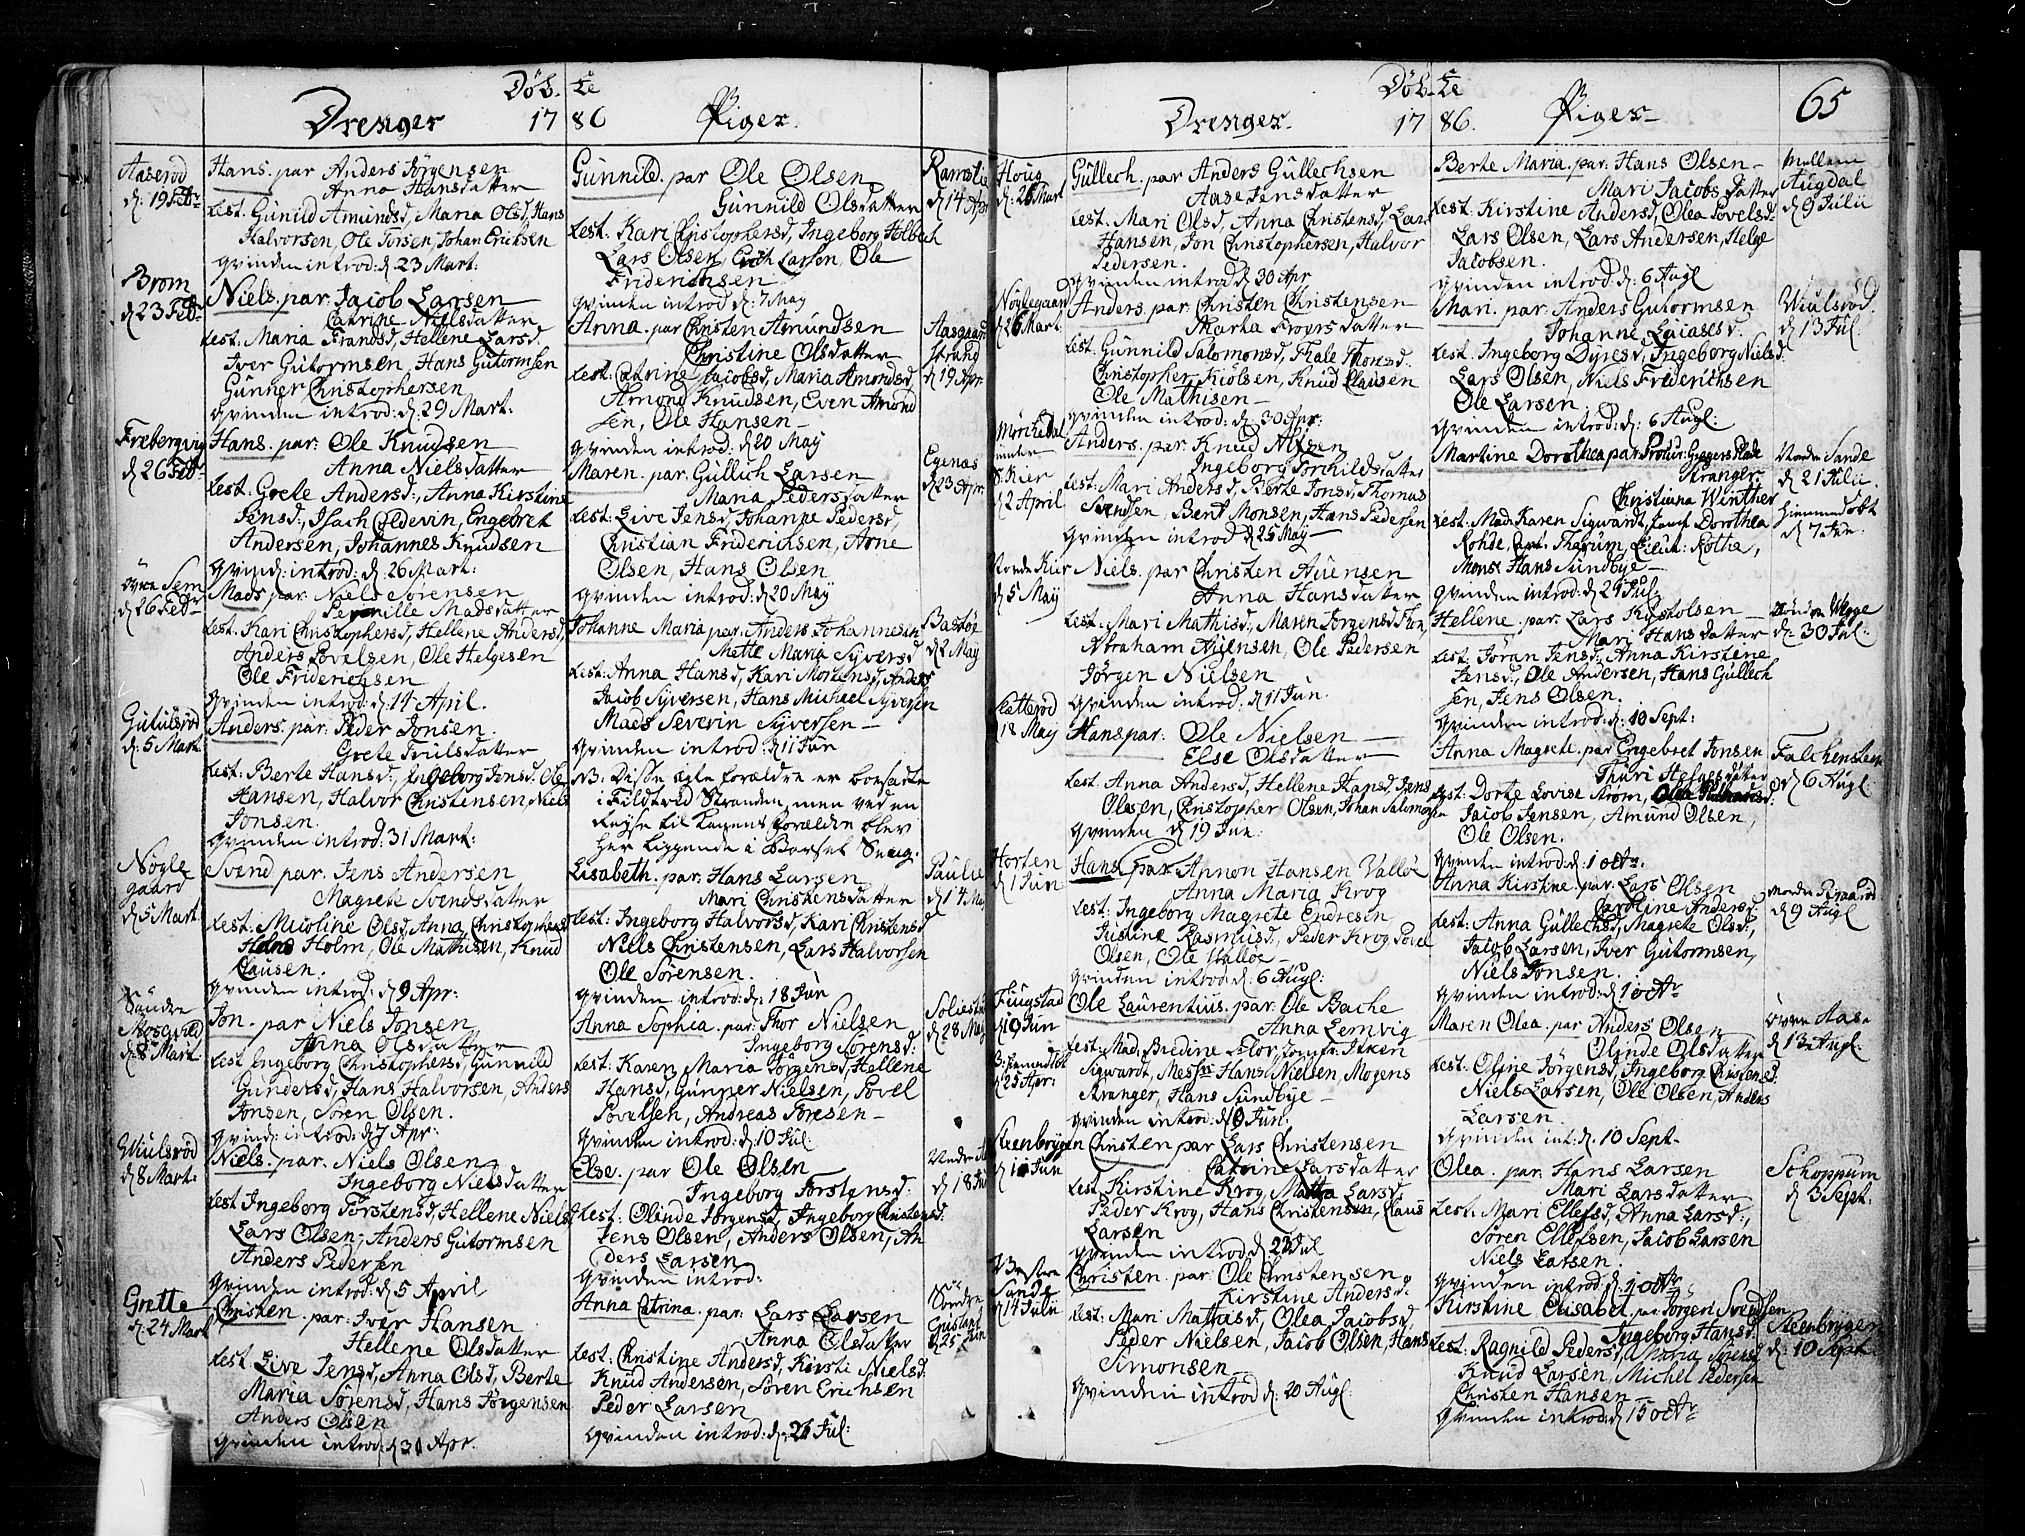 Døbte
Drenger 1786 Piger.
Aaserød
d: 19 Febr
Hans. par Anders Jörgensen
Anna Hansdatter
test. Gunild Amundsd, Maria Olsd, Hans
Halvorsen, Ole Torsen, Johan Erichsen
qvinden introd: d 23 Mart:
Brom
d 23 Febr
Niels. par. Jacob Larsen
Catrine Nielsdatter
test: Maria Frandsd, Hellene Larsd.
Iver Gutormsen, Hans Gutormsen
Gunner Christophersen
qvinden introd: d. 29 Mart:
Frebergvig
d. 26 Febr
Hans. par: Ole Knudsen
Anna Nielsdatter
test. Grete Andersd:, Anna Kirstine
Jensd:, Isach Coldevin, Engebret
Andersen, Johannes Knudsen
qvind: introd: d. 26 Mart:
övre Sem
d. 26 Febr
Mads par. Niels Sörensen
Pernille Madsdatter
test. Kari Christophersd, Hellene Andersd,
Anders Povelsen, Ole Helgesen
Ole Friderichsen
qvinden introd: d. 14 April.
d: 5 Mart.
Anders. par: Peder Jonsen.
Grete Trulsdatter
test: Berte Hansd:, Ingeborg Jensd. Ole
Hansen, Halvor Christensen, Niels
Jonsen.
qvinden introd: 31 Mart:
Nøgle
gaard
d. 5 Mart.
Svend par. Jens Andersen
Magrete Svendsdatter
test: Nicoline Olsd, Anna Christophersd
Holm, Ole Mathisen, Knud
Clausen.
qvinden introd: d 9 Apr:
Søndre
d. 8 Mart
Jon. par Niels Jonsen
Anna Olsdatter
test Ingeborg Christophersd, Gunnild
Gundersd, Hans Halvorsen, Anders
Jonsen, Sören Olsen.
qvind: introd: d. 7 Apr:
d. 8 Mart.
Niels. par. Niels Olsen
Ingeborg Nielsdatter
test Ingeborg Torstensd, Hellene Nielsd
Lars Olsen, Anders Gutormsen
Anders Pedersen
qvinden introd: d. 5 April
Grette
d. 24 Mart
Christen. par: Iver Hansen
Hellene Olsdatter
test. Live Jensd, Anna Olsd, Berte
Maria Sörensd, Hans Jörgensen
Anders Olsen
qvinden introd: d 31 Apr.
Gunnild. par Ole Olsen
Gunnild Olsdatter
test. Kari Christophersd, Ingeborg Holbech
Lars Olsen, Erich Larsen, Ole
Friderichsen
qvinden introd d: 7 May
Ramslie
d. 14 Apr
Anna. par Christen Amundsen
Christine Olsdatter
test: Catrine Jacobsd, Maria Amondsd,
Amond Knudsen, Even Amond
sen, Ole Hansen
qvinden introd: d 20 May
Aasgaard
strand
d. 19 Apr
Maren. par. Gullich Larsen
Maria Pedersdatter
test: Live Jensd, Johanne Pedersd,
Christian Friderichsen, Arne
Olsen, Hans Olsen
qvinden introd: d 20 May
Egenæs
d. 23 Apr.
Johanne Maria par. Anders Johannesen
Mette Maria Syversd
test: Anna Hansd, Kari Mortensd, Anders
Jacob Syversen, Hans Michael Syversen
Mads Severin Syversen
qvinden introd: d 11 Jun
Bastøe
d. 2 May
NB: Disse ægte forældre er bosatte
i Stranden, men ved en
Reyse til forældre blev
her liggende i Barsel Seng.
Lisabeth. par: Hans Larsen
Mari Christensdatter
test: Ingeborg Halvorsd, Kari Christensd
Niels Christensen, Lars Halvorsen
Ole Sörensen.
qvinden introd: d: 18 Jun
Paulie
d. 14 May
Anna Sophia par: Thor Nielsen
Ingeborg Sörensd:
test: Karen Maria Jörgensd, Hellene
Hansd, Gunner Nielsen, Povel
Povelsen, Andreas Toresen
qvinden introd: d. 10 Jul.
d. 28 May
Else. par Ole Olsen
Ingeborg Torstensd:
test: Olinde Jörgensd, Ingeborg Christensd.
Jens Olsen, Anders Olsen, An
ders Larsen
qvinden introd:
d. 18 Jun
Anna Catrina. par: Lars Larsen
Anna Olsdatter
test: Christine Andersd, Kirsti Nielsd:
Knud Andersen, Sören Erichsen
Peder Larsen
qvinden introd: d. 26 Jul:
Søndre
d. 25 Jun
Døbte
Drenger. 1786. Piger
65
Houg
d: 26 Mart
Gullech. par Anders Gullechsen
Aase Jensdatter
test. Mari Olsd, Anna Christensd, Lars
Hansen, Jon Christophersen, Halvor
Pedersen.
qvinden introd d. 30 Apr
Nøglegaard
d. 26 Mart.
Anders. par Christen Christensen
Marta Froersdatter
test. Gunnild Salomonsd, Thale Thorsd.
Christopher Kiölsen, Knud Clausen
Ole Mathisen
qvinden introd: d. 30 Apr:
Mörchedal
under
d 2 April
Anders. par. Knud Olsen
Ingeborg Torchildsdatter
test: Mari Andersd, Berte Jonsd, Thomas
Svendsen, Bent Monsen, Hans Pedersen
qvinden introd d 25 May
Nordre Kier
d. 5 May
Niels. par Christen Auensen
Anna Hansdatter
test. Mari Mathisd, Maren Jörgensd
Abraham Auensen, Ole Pedersen
Jörgen Nielsen
qvinden introd: d. 11 Jun.
Slatterød
18 May
Hans par: Ole Nielsen
Else Olsdatter
test. Anna Andersd, Hellene Hansd, Jens
Olsen, Christopher Olsen, Johan Salomonsen
qvinden d. 19 Jun:
Horten
d. 1 Jun
Hans par. Annon Hansen Valløe
Anna Maria Krog
test: Ingeborg Magrete Endresen
Justine Rasmusd., Peder Krog, Povel
Olsen, Ole Valløe
qvinden introd: d. 6 Augl:
Fuugstad
d 9 Jun
hiemmedøbt
d 25 Apr:
Ole Laurentius. par: Ole Bache
Anna Lemvig
test: Mad. Bredine Jomfr:
Sigwardt, Messrs Hans Nielsen, Mogens
Kranger, Hans Sundbye
qvinden introd: d 9 Jun:
Steenbryggen
d. 11 Jun
Christen par Lars Christensen
Catrine Larsdatter
test. Kirstine Krog, Martha Larsd
Peder Krog, Hans Christensen, Claus
Larsen
qvinden introd d. 22 Jul
Vestre
Sande
d 14 Julii
Christen. par: Ole Christensen
Kirstine Andersd:
test: Mari Mathisd, Olea Jacobsd,
Peder Nielsen, Jacob Olsen, Hans
Simonsen
qvinden introd d: 20 Augl:
Berte Maria. par: Hans Olsen
Mari Jacobsdatter
test. Kirstine Andersd, Olea Povelsd:
Lars Olsen, Lars Andersen, Helge
Jacobsen.
qvinden introd: d: 6 Augl
Mellem
Augdal
d 9 Julii
Mari. par: Anders Gutormsen
Johanne Lucasesd.
test: Ingeborg Dyresd, Ingeborg Nielsd.
Lars Olsen, Niels Friderichsen
Ole Larsen.
qvinden introd: d: 6 Augl:
d 13 Jul.
Martine Dorothea par Procur: Greggers Rode
Stranger
Christiana Winther
test: Mad. Karen Sigwardt, Jomf Dorothea
Rohde, Capt. Tharum, Lieut: Rothe,
Monsr Hans Sundbye
qvinden introd: d: 21 Jul
Nordre Sande
d 21 Julii.
hiemmedøbt
d 7 Jun.
Hellene. par Lars Kystolsen
Mari Hansdatter
test: Jöran Jensd:, Anna Kirstene
Jensd., Ole Andersen, Hans Gullech
sen, Jens Olsen.
qvinden introd: d: 10 Sept:
d. 30 Jul:
Anna Magrete. par Engebret Jonsen
Thuri Helgesdatter
test: Dorte Lovise Strøm,
Jacob Jensen, Amund Olsen,
Ole Olsen.
qvinden introd: d: 1 octr.
Falchensteen
d 6 Augl:
Anna Kirstine. par. Lars Olsen
Caroline Andersd
test: Anna Gullechsd, Magrete Olsd:,
Jacob Larsen, Iver Gutormsen,
Niels Jonsen.
qvinden introd: d 1 octr
d. 9 Augl
Maren Olea. par Anders Olsen
Olinde Olsdatter
test: Oline Jörgensd, Ingeborg Christensd:
Niels Larsen, Ole Olsen, Anders
Larsen.
qvinden int: d. 10 Sept.
övre Aas
d 13 Augl.
Olea. par: Hans Larsen
Mari Larsdatter
test: Mari Ellefsd, Anna Larsd:,
Sören Ellefsen, Jacob Larsen
Niels Larsen.
qvinden introd: d. 1 octr
Schoppum
d 3 Sept.
Kirstine Elisabet par Jörgen Svendsen
Ingeborg Hansd:
test: Ragnild Pedersd, Maria Sörensd
Knud Larsen, Michel Pedersen
Christen Hansen
qvinden introd: d 15 octr
Steenbryggen
d: 10 Sept